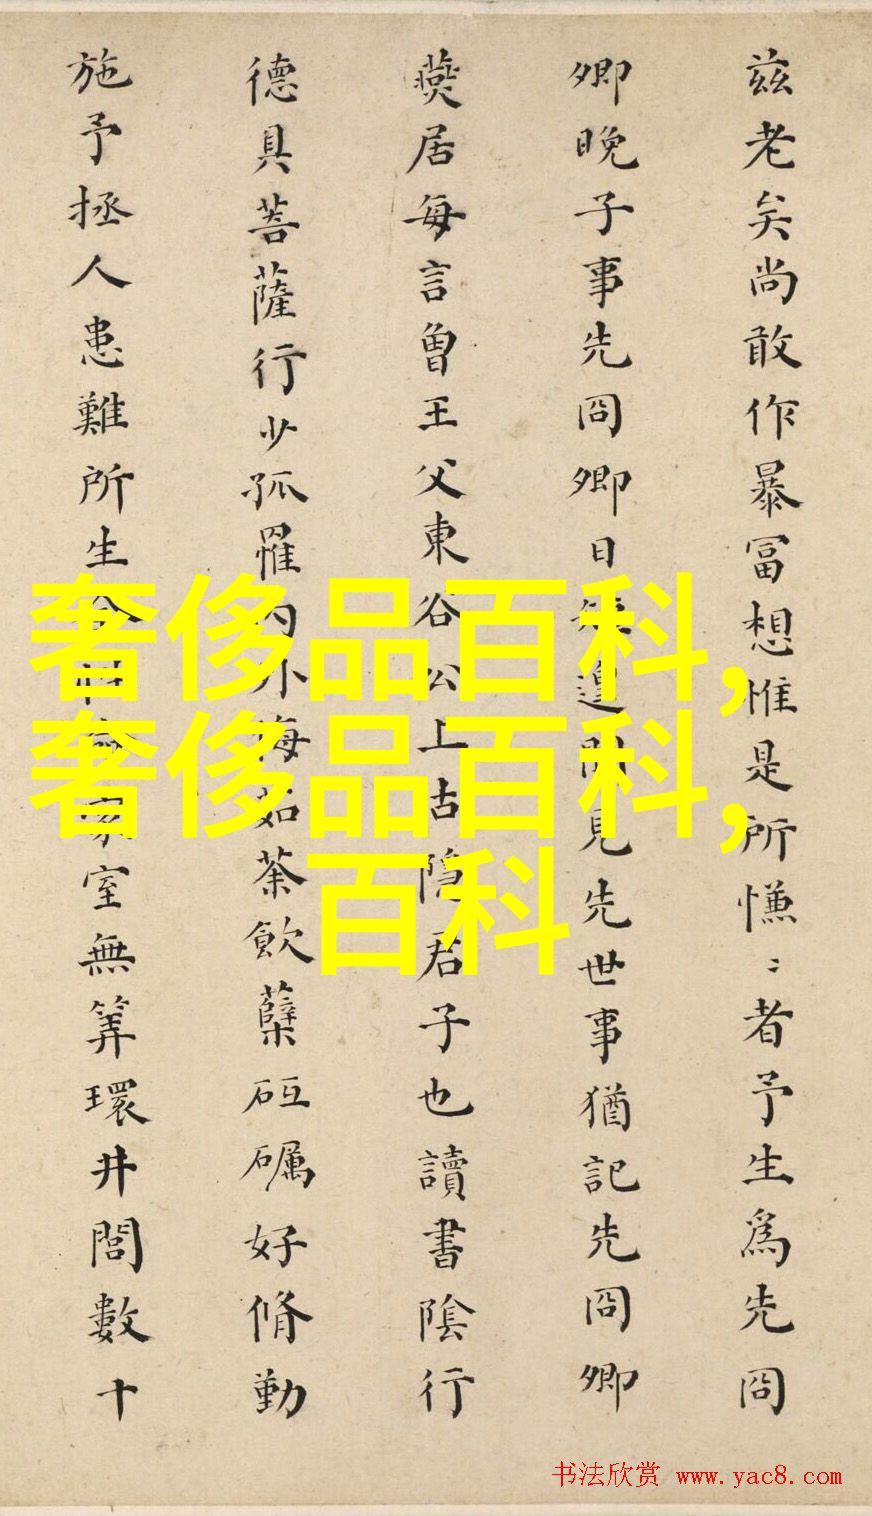 兹老矣尚敢作暴冨想惟是所慊〻者予生為先冏
卿晚子事先冏卿日遑聞見先世事猶記先冏卿
燕居每言曾王父東谷公上古隐君子也讀書隂行
德具菩薩行少孤罹内外侮茹荼飲蘖砥礪好脩勤
施予拯人患難所生家室無筭環井閭數十
奢侈品百科,
奢侈品百科,
百科
书法欣赏 www.yac8.com